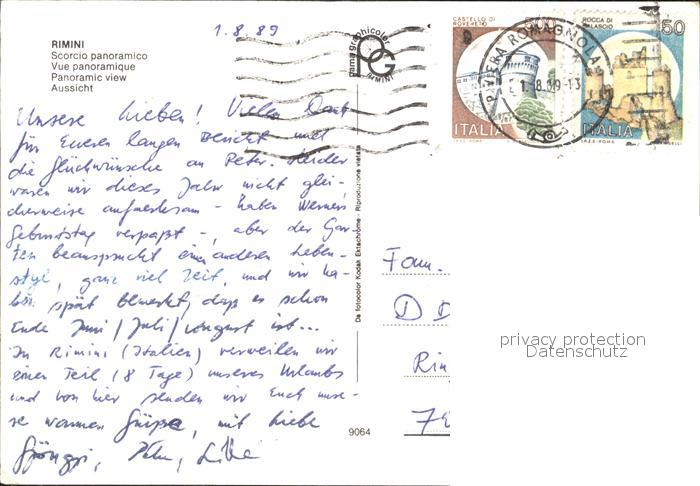 1.8.89
RIMINI
Scorcio panoramico
Vue panoramique
Panoramic view
Aussicht
Unsere Lieben! Vielen Dank
für Eueren langen Bericht und
die Glückwünsche an Peter. Leider
waren wir dieses Jahr nicht glei-
cherweise aufmerksam - haben Werners
Geburtstag verpaßt -, aber der Gar-
ten beansprucht einen anderen Leben-
styl, ganz viel Zeit, und wir ha-
ben spät bemerkt, dap es schon
Ende Juni/Juli/August ist...
In Rimini (Italien) verweilen wir
einen Teil (8 Tage) unseres Urlaubs
und von hier senden wir Euch unse-
re warmen Grüpe, mit Liebe
Da fotocolor Kodak Ektachrome - Riproduzione vietata
9064
CASTELLO DI
ROVERETO
ITALIA
I.P.Z.S. ROMA
ROCCA DI
50
ITALIA
I.P.Z.S. ROMA
RIVIERA ROMAGNOLA
1.8.89-13
Fam.
D D
Rin
privacy protection
Datenschutz